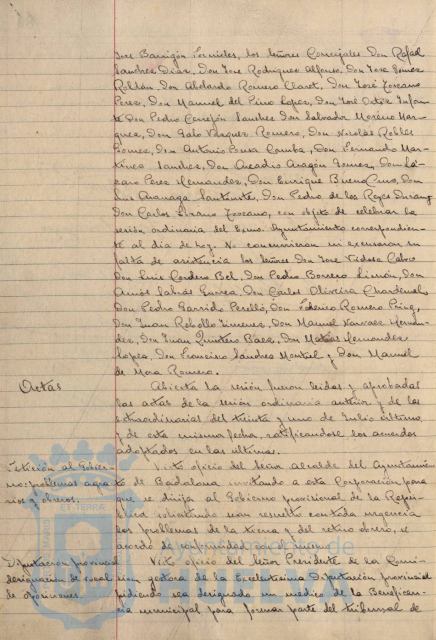 José Barrigón Fornieles, los señores Concejales Don Rafael
Sanchez Diaz, Don José Rodriguez Alfonso, Don José Gomez
Roldán, Don Abelardo Romero Claret, Don José Toscano
Perez, Don Manuel del Pino Lopez, Don José Ortiz Infan-
te Don Pedro Cerrejón Sanchez Don Salvador Moreno Mar-
quez, Don Galo Vazquez Romero, Don Nicolás Robles
Gomez, Don Antonio Pousa Camba, Don Fernando Mar-
tinez Sanchez, Don Arcadio Aragón Gomez, Don Lá-
zaro Perez Hernandez, Don Enrique Bueno Cruz, Don
Luis Don Pedro de los Reyes
Don Carlos Toscano, con objeto de celebrar la
sesión ordinaria del Excmo. Ayuntamiento correspondien-
te al dia de hoy. No concurrieron ni excusaron su
falta de asistencia los señores Don José
Don Luis Cordero Bel, Don Pedro Borrero Limón, Don
Amós Sabrás Gurrea, Don Carlos Oliveira Chardenal,
Don Pedro Garrido Perelló, Don Federico Romero
Don Juan Rebollo Jimenez, Don Manuel Narvaez Hernan-
dez, Don Juan Quintero Baez, Don Matías Hernandez
Lopez, Don Francisco Sanchez Montiel y Don Manuel
de Mora Romero.
Actas
Abierta la sesión fueron leidas y aprobadas
las actas de la sesión ordinaria anterior y de las
extraordinarias del treinta y uno de Julio último
y de esta misma fecha, ratificandose los acuerdos
adoptados en las ultimas.
Petición al Gobier-
no: problemas agra-
rios y obreros.
Visto oficio del señor alcalde del Ayuntamien-
to de Badalona invitando a esta Corporación para
que se dirija al Gobierno provisional de la Repú-
blica solicitando sean resueltos con toda urgencia
los problemas de la tierra y del retiro obrero, se
acordó de conformidad
Diputación provincial
designación de vocal
de oposiciones.
Visto oficio del señor Presidente de la Comi-
sión gestora de la Excelentisima Diputación provincial
pidiendo sea designado un medico de la Beneficen-
cia municipal para formar parte del tribunal de
ET TERRAE
Ayuntamiento de